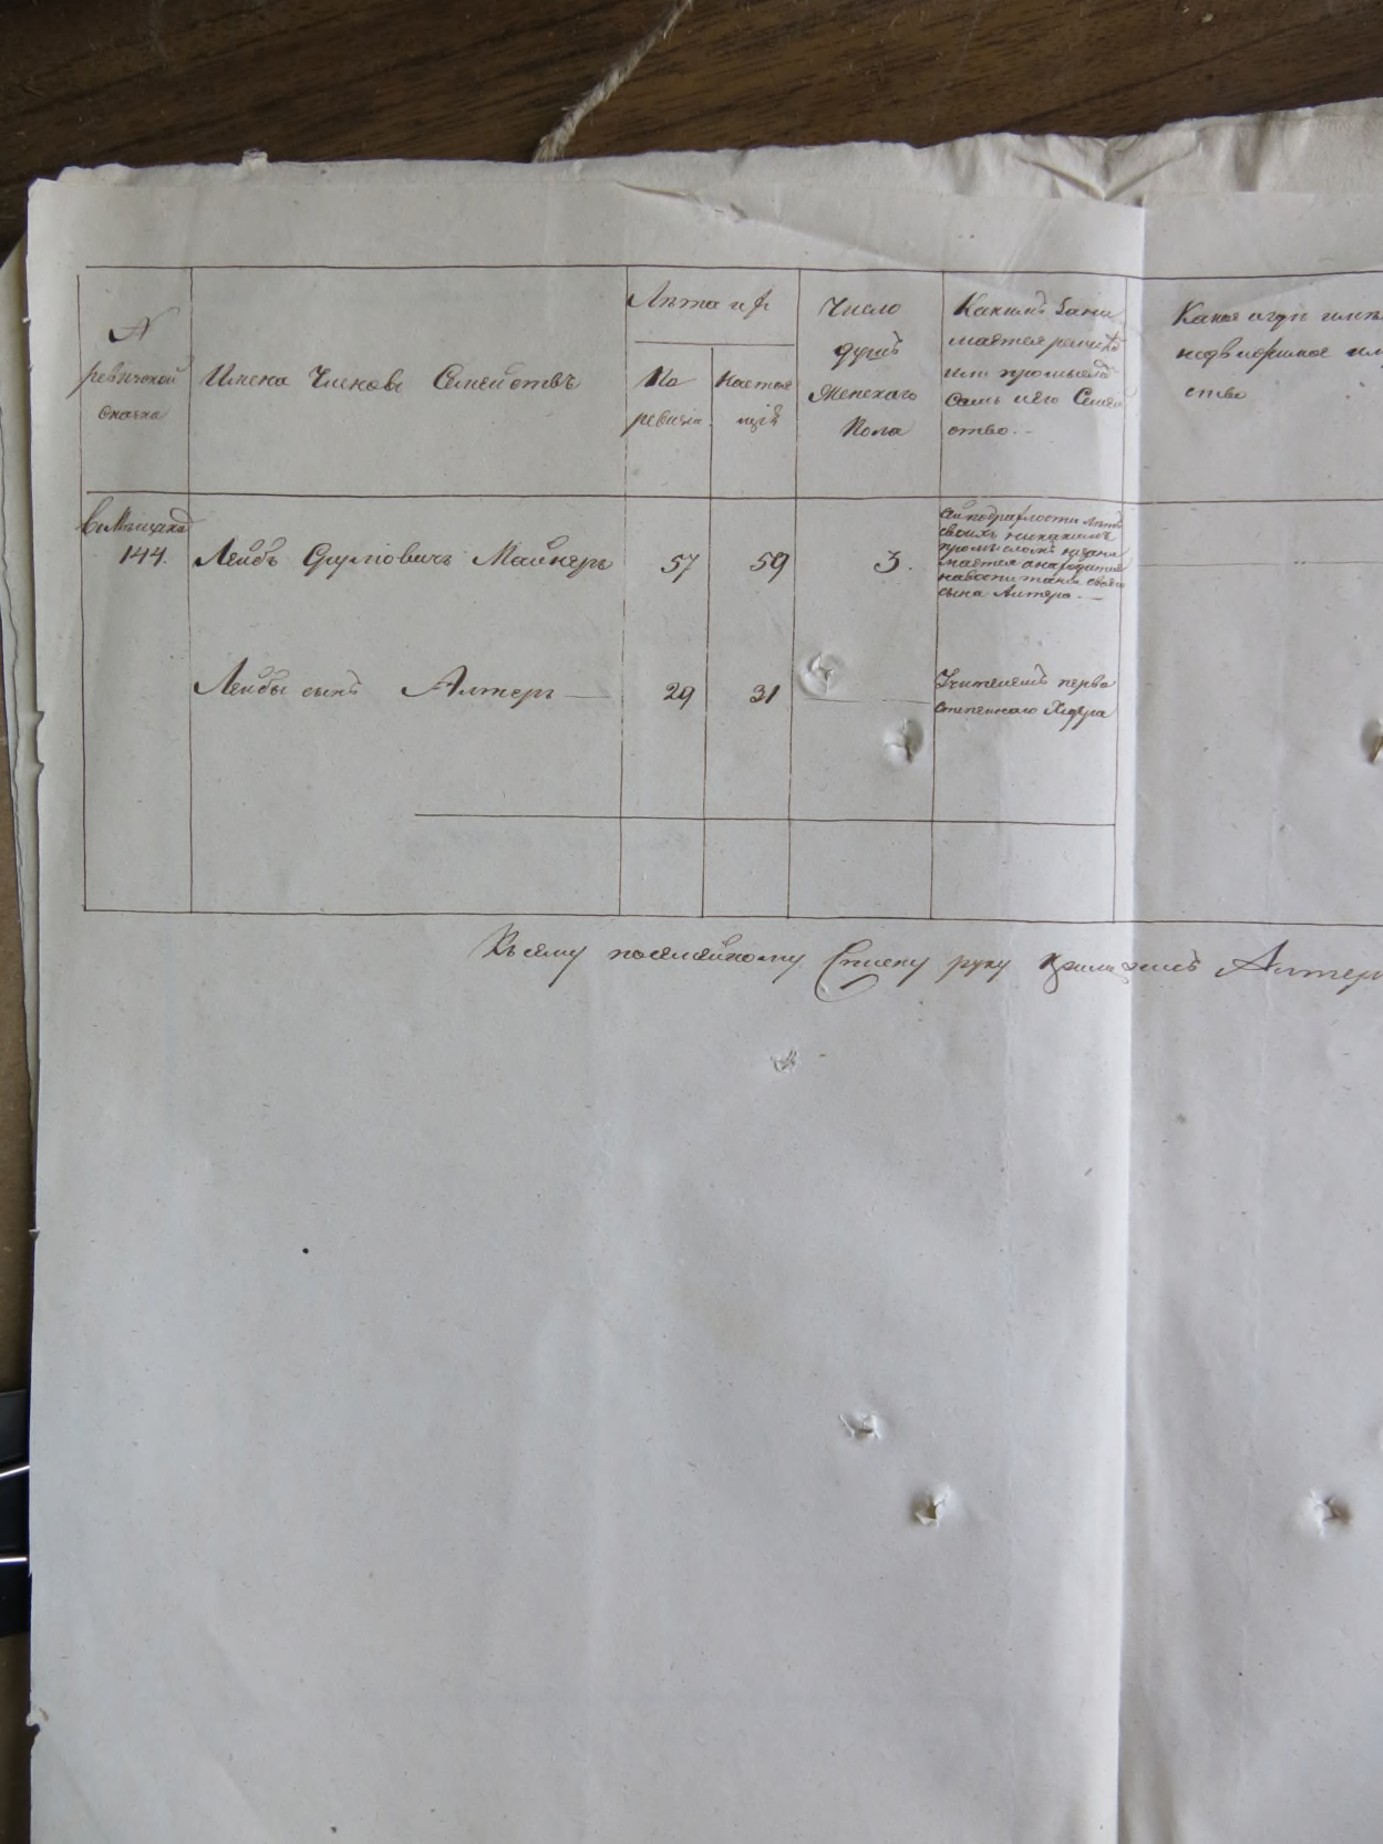 №
ревизской
сказки
Имена Членовъ Семействъ
Лѣта ихъ
По
ревизіи
Настоя
щія
Число
душъ
Женскаго
Пола
Какимъ Зани
мается ремесл
или промысло
Самъ и его Семей
ство. -
Какое
недвижимое им
ство
въ Мѣщанах
144. Лейбъ Сруловичъ Майнеръ 57 59 3.
своихъ никакимъ
промысломъ незани
мается а находится
на воспитаніи своего
сына Алтера. —
Лейбы сынъ Алтеръ — 29 31
Учителемъ перво
степеннаго Хедера
Къ сему посемейному Списку руку приложилъ Алтеръ